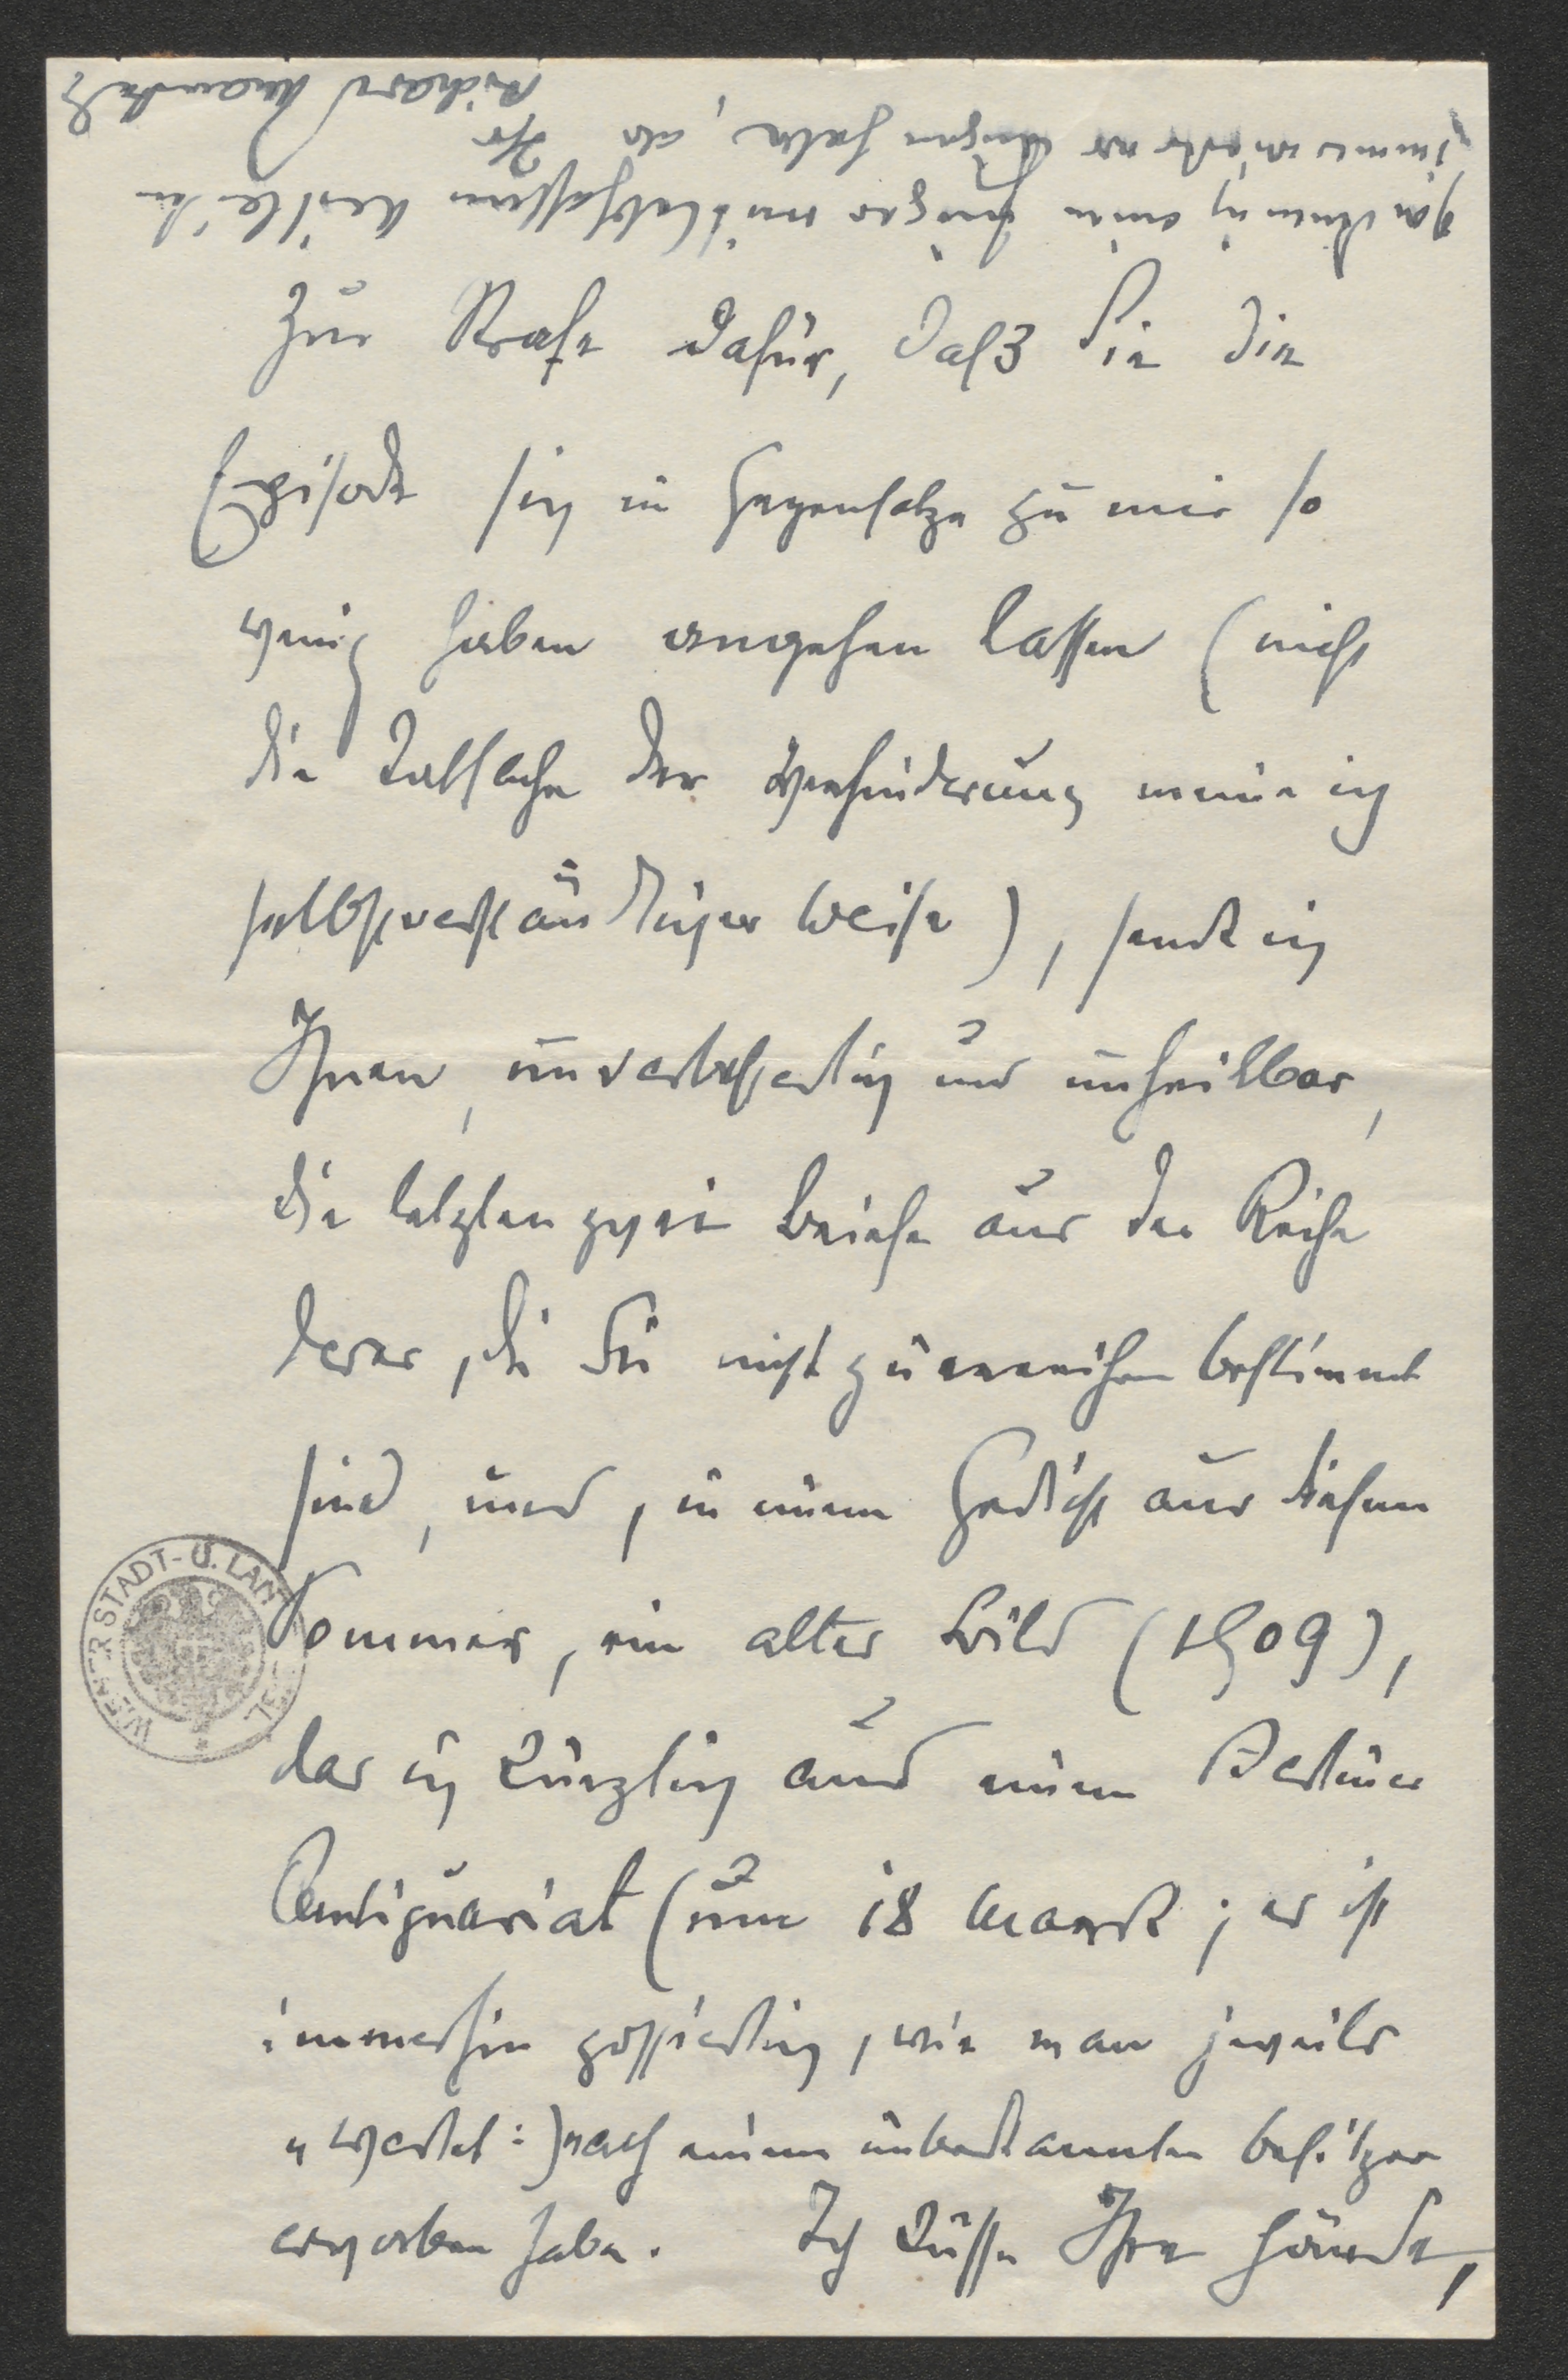 Zur Strafe dafür, daß Sie die
Episode sich im Gegensatze zu mir so
wenig haben angehen lassen (nicht
die Tatsache der Verhinderung meine ich
selbstverständlicher Weise), sende ich
Ihnen, unverbesserlich und unheilbar,
die letzten zwei Briefe aus der Reihe
derer, die Sie nicht zu erreichen bestimmt
sind, und, zu einem Gedicht aus diesem
Sommer, ein altes Bild (1909),
das ich kürzlich aus einem Berliner
Antiquariat (um 18 Mark; es ist
immerhin possierlich, wie man jeweils
„wertet“) nach einem unbekannten Besitzer
erworben habe. Ich küsse Ihre Hände,
immer wieder vor Augen habe, als Ihr
Richard
WIENER STADT- U. LAN